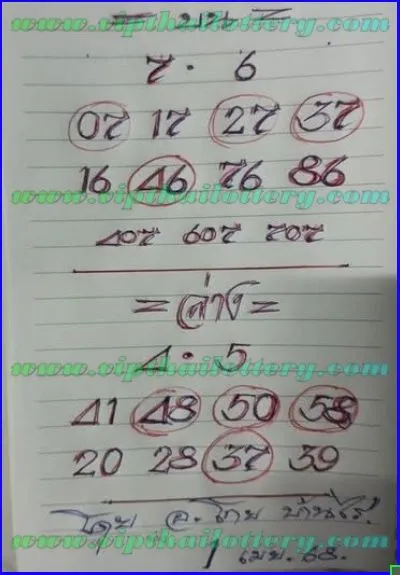 = บน =
www.vipthailottery.com
7 · 6
07 17 27 37
www.vipthailottery.com
16 46 76 86
www.vipthailottery.com
407 607 707
= ล่าง =
4 · 5
www.vipthailottery.com
41 48 50 58
www.vipthailottery.com
20 28 37 39
โดย อ. โทย บ้านไร่.
www.vipthailottery.com
1 เมย. 68.